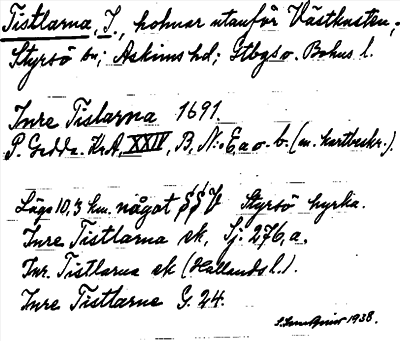 Tistlarna, I., holmar utanför Västkusten,
Styrsö sn; Askims hd; Gtbgs o. Bohus l.
Inre Tislarna 1691.
P. Gedda. KrA, XXIV, B, N:o E, a o. b. (m. kartbeskr.).
Lägs 10,3 km. något S§V Styrsö kyrka.
Inre Tistlarna ek, Sj. 276, a.
Inr. Tistlarna ek (Hallands l.).
Inre Tistlarne G. 24.
1938.